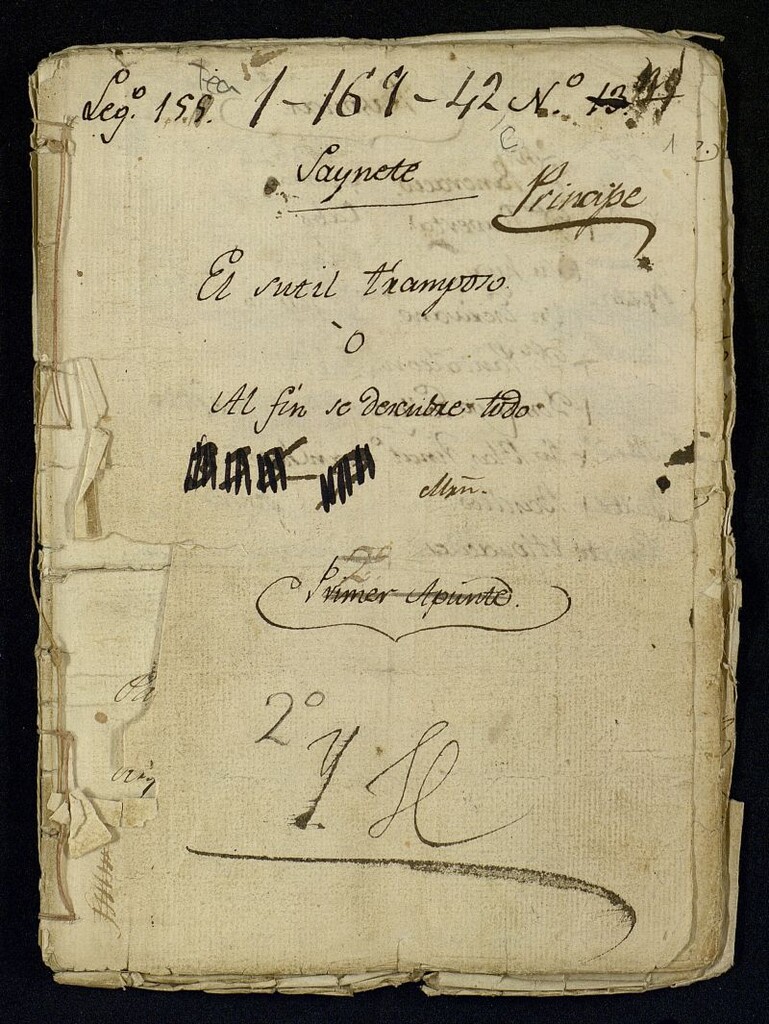 Tea
Leg.º 159. 1-169-42 N.º 13
C
Saynete
Principe
El sutil tramposo
ò
Al fin se descubre todo
Mrn.
2º
Primer Apunte.
2º